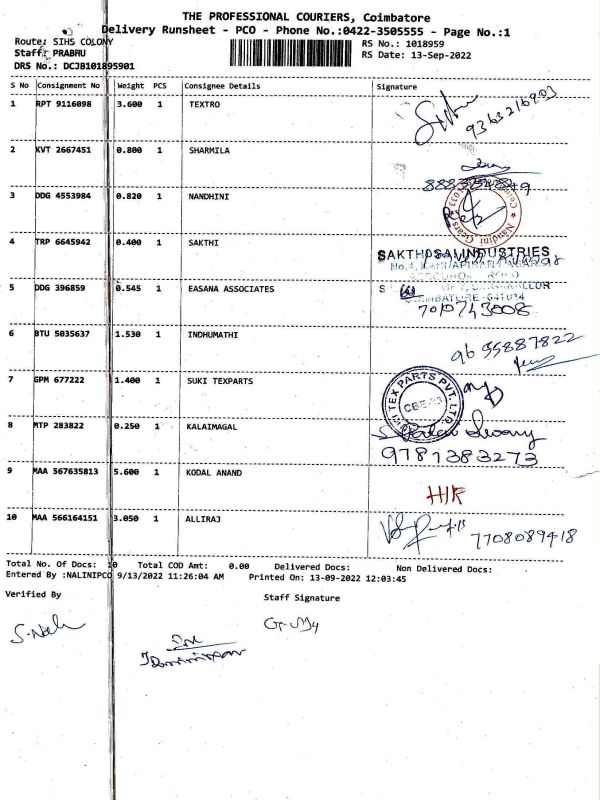 THE PROFESSIONAL COURIERS, Coimbatore
Delivery Runsheet - PCO - Phone No.:0422-3505555 - Page No.:1
Route: SIHS COLONY
RS No.: 1018959
Staff: PRABHU
RS Date: 13-Sep-2022
DRS No.: DCJB101895901
S No Consignment No Weight PCS Consignee Details Signature
1 RPT 9116098 3.600 1 TEXTRO
2 KVT 2667451 0.800 1 SHARMILA
3 DDG 4553984 0.820 1 NANDHINI
4 TRP 6645942 0.400 1 SAKTHI
SAKTHI INDUSTRIES
5 DDG 396859 0.545 1 EASANA ASSOCIATES
COIMBATORE-641014
6 BTU 5035637 1.530 1 INDHUMATHI
9655887822
7 GPM 677222 1.400 1 SUKI TEXPARTS
TEX PARTS PVT. LTD.
8 MTP 283822 0.250 1 KALAIMAGAL
9781383273
9 MAA 567635813 5.600 1 KODAL ANAND
HIR
10 MAA 566164151 3.050 1 ALLIRAJ
7708089418
Total No. Of Docs: 10 Total COD Amt: 0.00 Delivered Docs: Non Delivered Docs:
Entered By :NALINIPCO 9/13/2022 11:26:04 AM Printed On: 13-09-2022 12:03:45
Verified By Staff Signature